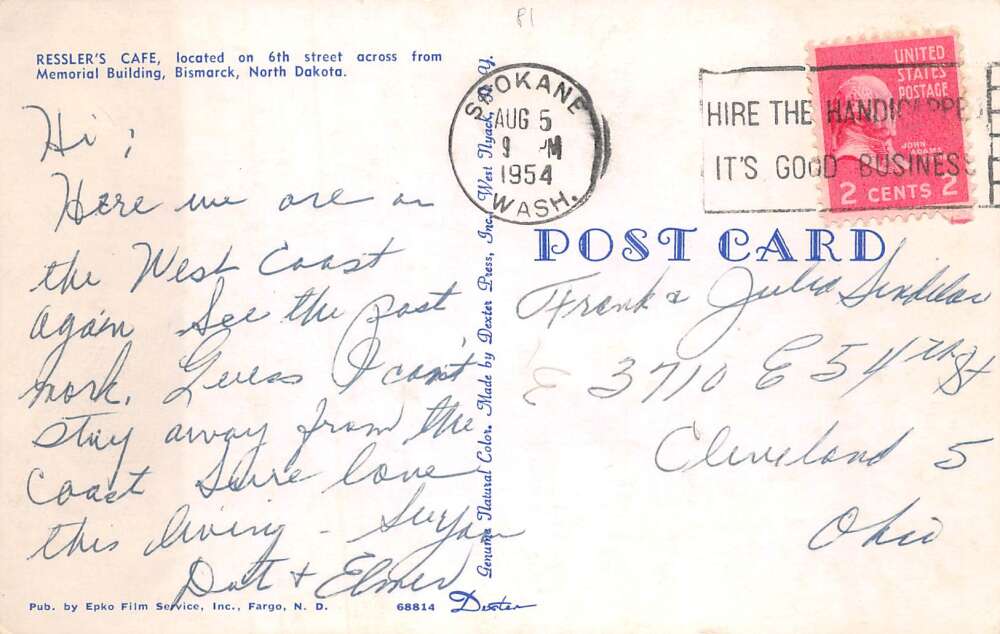 P1
RESSLER'S CAFE, located on 6th street across from
Memorial Building, Bismarck, North Dakota.
Hi ;
Here we are on
the West Coast
again See the post
mark. Guess I can't
stay away from the
Coast Sure love
this living -
Dot & Elmer
Pub. by Epko Film Service, Inc., Fargo, N. D.
68814
Dexter
Genuine Natural Color. Made by Dexter Press, Inc., West Nyack, N. Y.
SPOKANE
AUG 5
9 PM
1954
WASH.
HIRE THE HANDICAPPED
IT'S GOOD BUSINESS
UNITED
STATES
POSTAGE
JOHN
ADAMS
2 CENTS 2
POST CARD
Frank & Julia
3710 E 54th St
Cleveland 5
Ohio